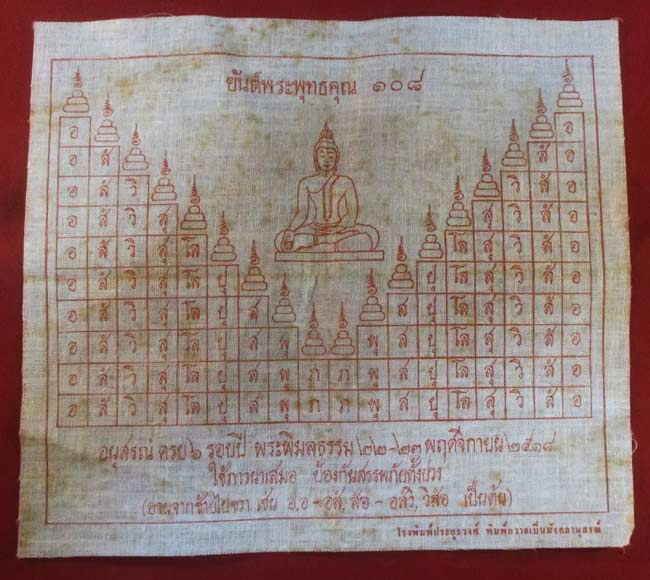 ยันต์พระพุทธคุณ ๑๐๘
อ อ
อ สํ สํ อ
อ สํ วิ วิ สํ อ
อ สํ วิ สุ สุ วิ สํ อ
อ สํ วิ สุ โล โล สุ วิ สํ อ
อ สํ วิ สุ โล ปุ ปุ โล สุ วิ สํ อ
อ สํ วิ สุ โล ปุ ส ส ปุ โล สุ วิ สํ อ
อ สํ วิ สุ โล ปุ ส พุ พุ ส ปุ โล สุ วิ สํ อ
อ สํ วิ สุ โล ปุ ส พุ ภ ภ พุ ส ปุ โล สุ วิ สํ อ
อ สํ วิ สุ โล ปุ ส พุ ภ ภ พุ ส ปุ โล สุ วิ สํ อ
อนุสรณ์ ครบ ๖ รอบปี พระพิมลธรรม ๒๒-๒๓ พฤศจิกายน ๒๕๑๘
ใช้ภาวนาเสมอ ป้องกันสรรพภัยทั้งปวง
(อ่านจากซ้ายไปขวา เช่น อ,อ - อสํ, สํอ - อสํวิ, วิสํอ เป็นต้น)
โรงพิมพ์ประยูรวงศ์ พิมพ์ถวายเป็นมังคลานุสรณ์